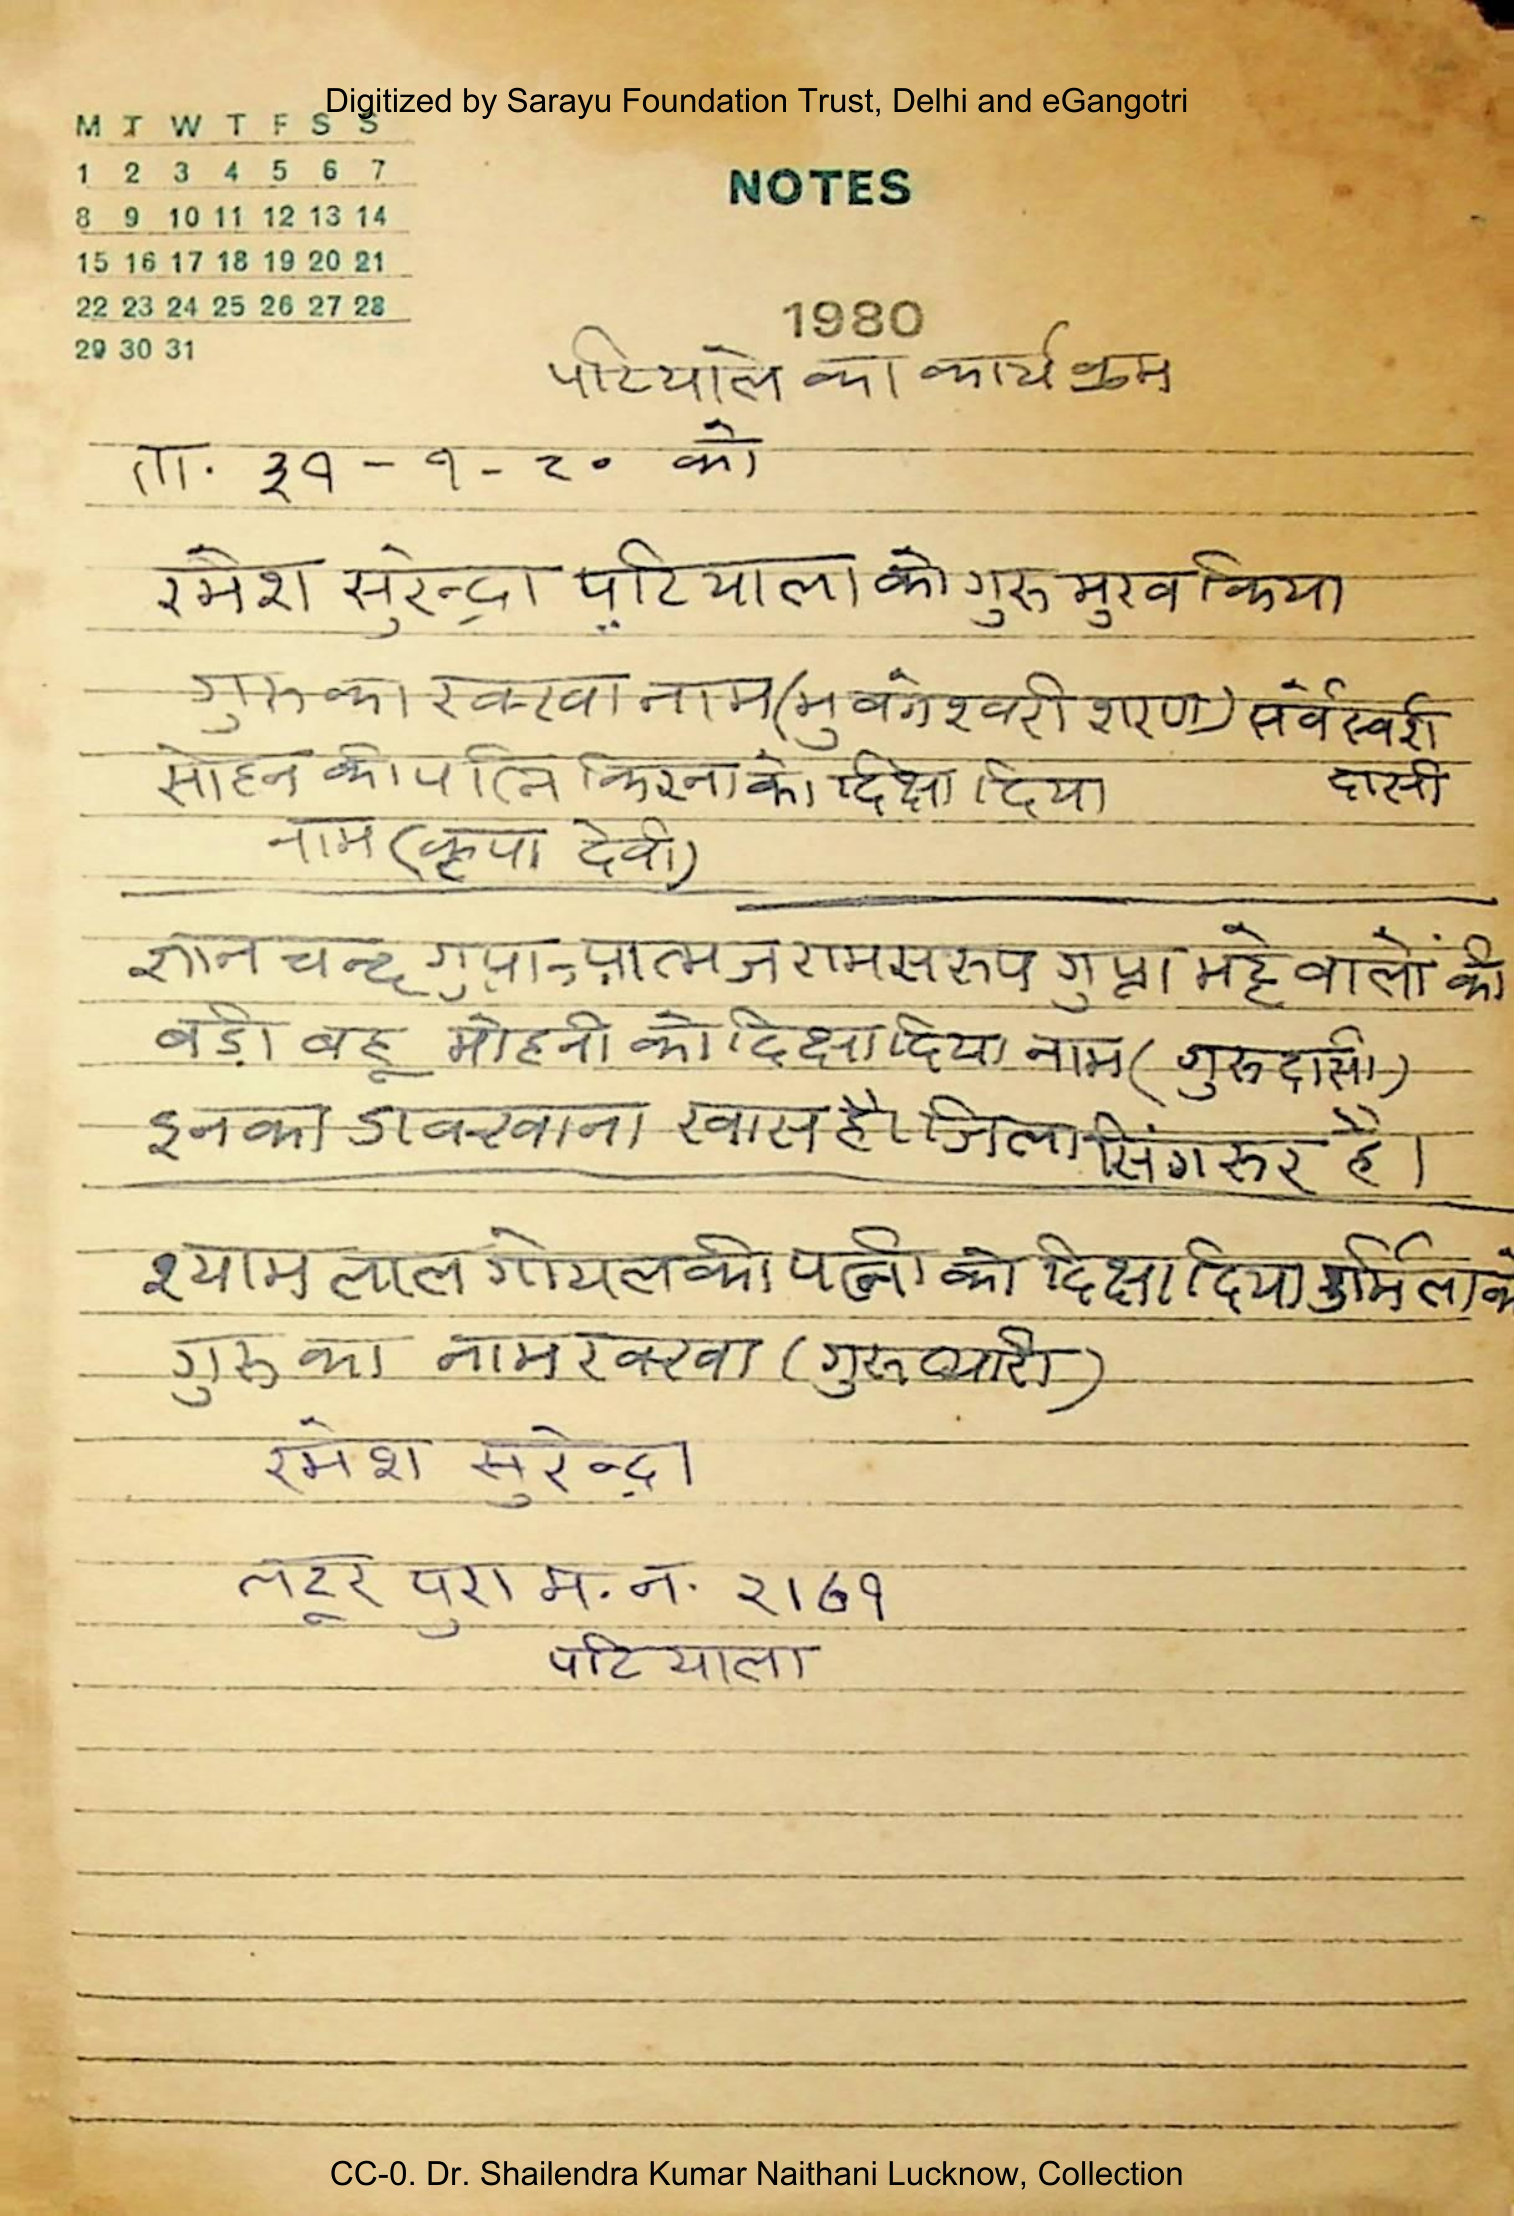 Digitized by Sarayu Foundation Trust, Delhi and eGangotri
M T W T F S S
1 2 3 4 5 6 7
8 9 10 11 12 13 14
15 16 17 18 19 20 21
22 23 24 25 26 27 28
29 30 31
NOTES
1980
पटियाले का कार्य क्रम
ता. ३१ - १ - ८० को
रमेश सुरेन्द्रा पटियाला को गुरु मुख किया
गुरु का रक्खा नाम (भुवनेश्वरी शरण) सर्वेस्वरी
सोहन की पत्नि किरना को दिक्षा दिया दासी
नाम (कृपा देवी)
ज्ञान चन्द्र गुप्ता आत्मज राम सरुप गुप्ता भट्टे वालों की
बड़ी बहू मोहनी को दिक्षा दिया नाम (गुरु दासी)
इनका डाकखाना खास है। जिला सिंगरुर है।
श्याम लाल गोयल की पत्नी को दिक्षा दिया उर्मिला को
गुरु का नाम रक्खा (गुरु प्यारी)
रमेश सुरेन्द्रा
लटूर पुरा म. न. २१७१
पटियाला
CC-0. Dr. Shailendra Kumar Naithani Lucknow, Collection